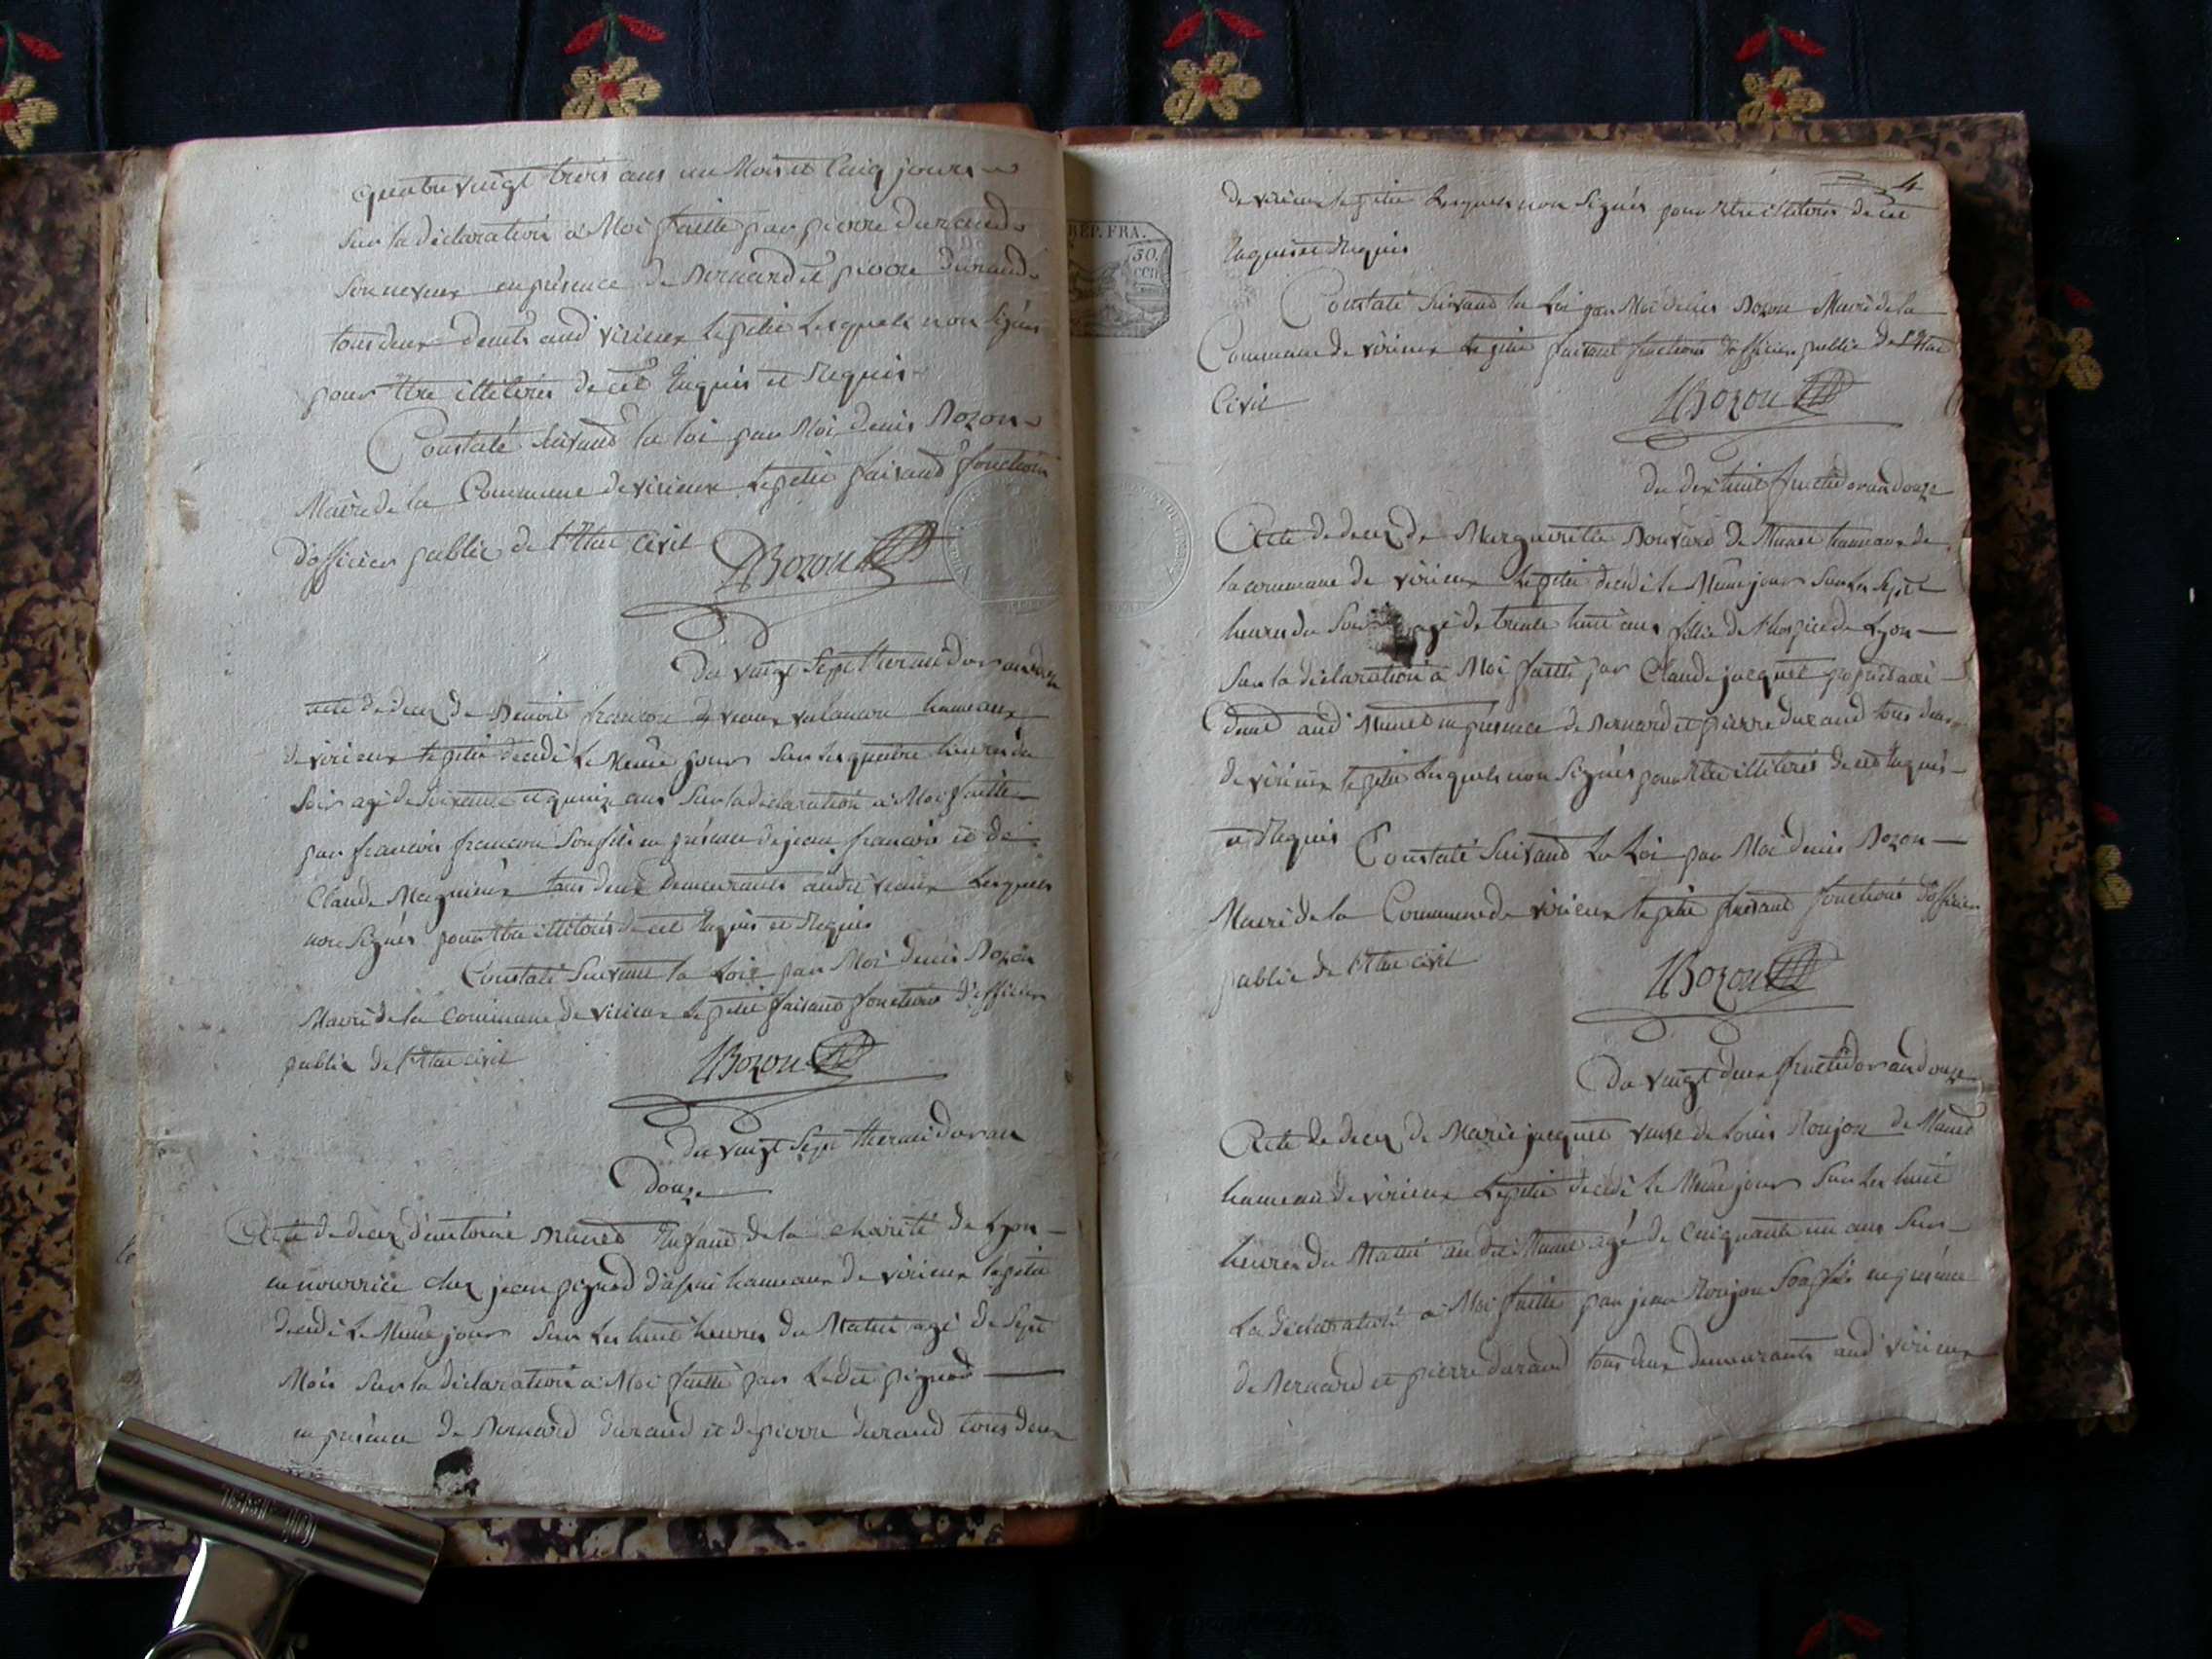 quatre vingt trois ans un Mois et Cinq jours
Sur la déclaration à Moi faitte par pierre durand
Son neveux en présence de Bernard et pierre durand
tous deux demts aud virieux le petit Lesquels non Signés
pour Etre illiterés de cet Enquis et Requis
Constaté Suivand la loi par Moi denis Bozon
Maire de la Commune de virieux Lepetit faisand fonctions
d'officier public de l'Etat Civil
DBozon
Du vingt Sept thermidor an douze
acte de decez de Benoit françon de hameaux
de virieux le petit decedé Le Meme jour Sur les quatre heures du
Soir agé de Soixente et quinze ans Sur la déclaration à Moi faitte
par françois françon Son fils en présence de jean françois et de
Claude Magnieux tous deux demeurants audit Lesquels
non Signés pour Etre illiterés de cet Enquis et Requis
Constaté Suivant la Loix par Moi denis Bozon
Maire de la Commune de virieux Le petit faisand fonctions d'officier
public de l'Etat civil
DBozon
Du vingt Sept thermidor an
Douze
Acte de decez d'antoine Enfant de la charité de Lyon
en nourrice chez jean pignod hameaux de virieux lepetit
decedé Le Meme jour Sur Les huit heures du Matin agé de Sept
Mois Sur la déclaration à Moi faitte par Ledit pignod
en présence de Bernard durand et de pierre durand tous deux
4
de virieux le petit Lesquels non Signés pour Etre illiterés de cet
Enquis et Requis
Constaté Suivand la Loi par Moi denis Bozon Maire de la
Commune de virieux Le petit faisant fonctions d'officier public de l'Etat
Civil
DBozon
du dix huit fructidor an douze
Acte de decez de Margueritte Bouvard de hameaux de
la commune de virieux Lepetit decedé le Meme jour Sur les Sept
heures du Soir agé de trente huit ans fille de l'hospice de Lyon
Sur la déclaration à Moi faitte par Claude jacquet propriétaire
demt aud en présence de Bernard et pierre durand tous deux
de virieux le petit Lesquels non Signés pour Etre illiterés de cet Enquis
et Requis Constaté Suivand La Loi par Moi denis Bozon
Maire de la Commune de virieux le petit faisant fonctions d'officier
public de l'Etat civil
DBozon
Du vingt deux fructidor an douze
Acte de decez de Marie jacquet veuve de Louis Roujon de
hameau de virieux Lepetit decedé le Meme jour Sur Les huit
heures du Matin audit agé de Cinquante un ans Sur
La déclaration à Moi faitte par jean Roujon Son fils en présence
de Bernard et pierre durand tous deux demeurants aud virieux
REP. FRA.
50.
CEN